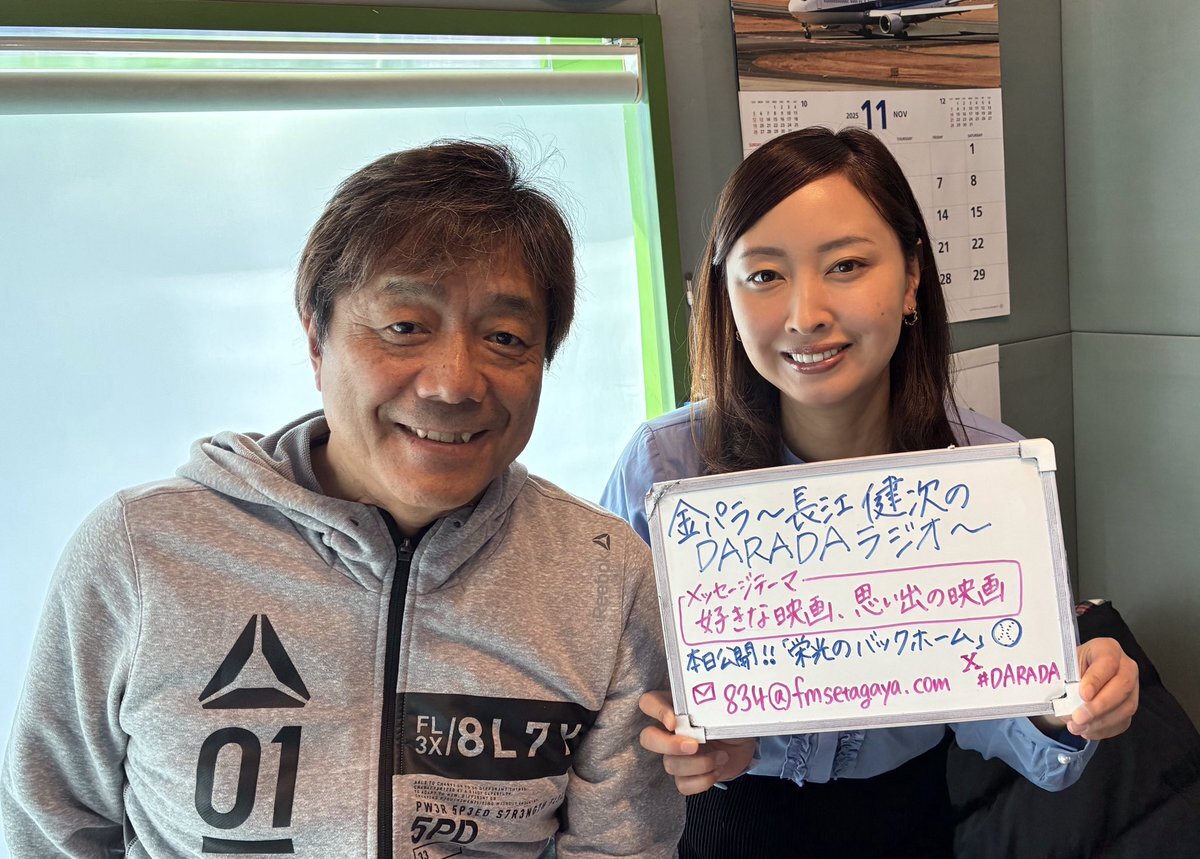 10
2025 11 NOV
12
THURSDAY FRIDAY
1
7 8
14 15
21 22
28 29
金パラ〜長江健次の
DARADAラジオ〜
メッセージテーマ
好きな映画、思い出の映画
本日公開!!「栄光のバックホーム」
834@fmsetagaya.com
X
#DARADA
Reebok
01
FL
3X/8L7
PW3R 5P3ED S7R3NG7H
5PD
33